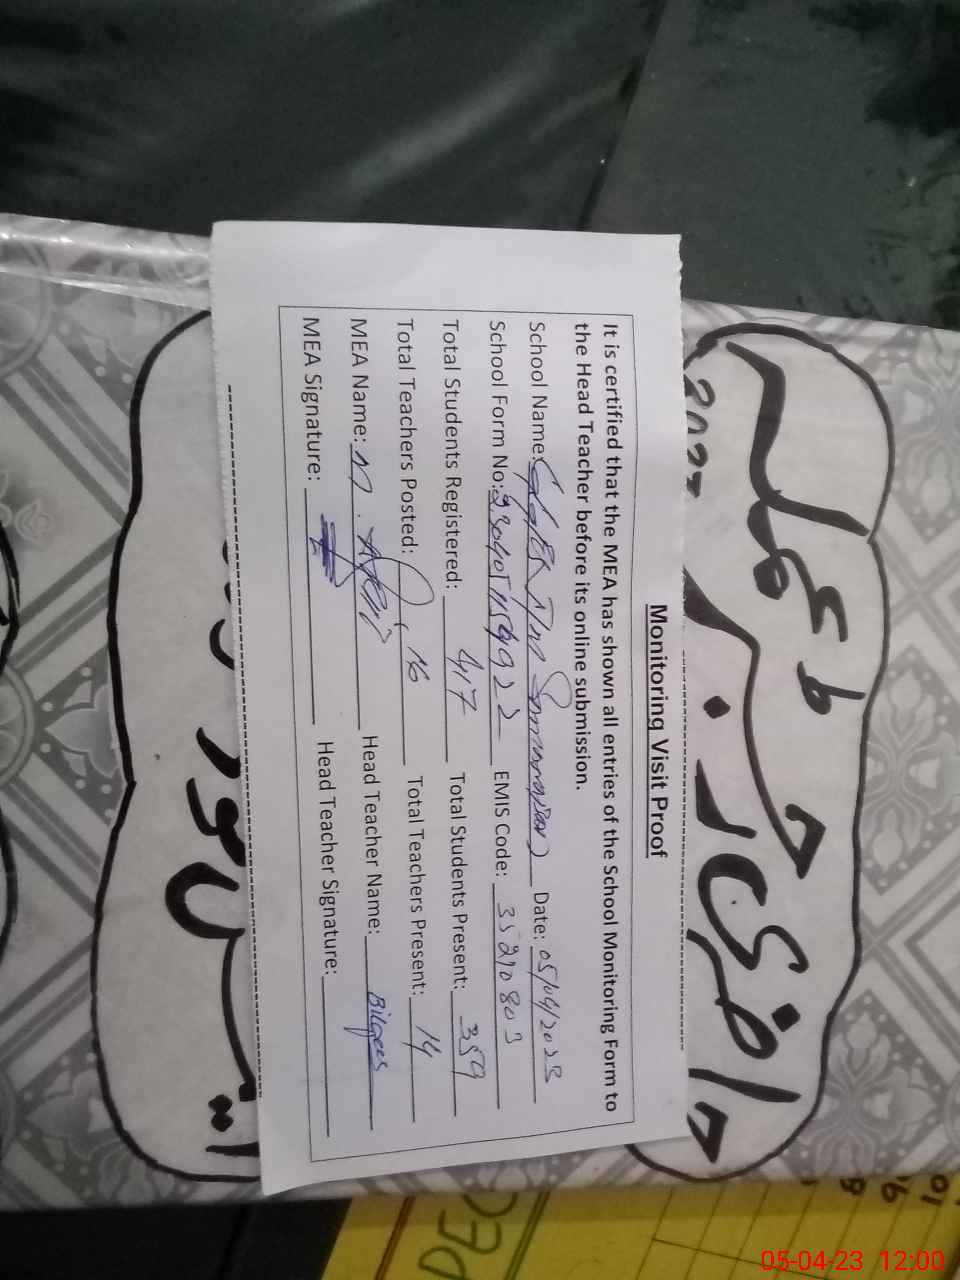 حاضری رجسٹر عملہ
Monitoring Visit Proof
It is certified that the MEA has shown all entries of the School Monitoring Form to
the Head Teacher before its online submission.
School Name: Date: 05/04/2023
School Form No: EMIS Code: 35210803
Total Students Registered: 417 Total Students Present: 359
Total Teachers Posted: 16 Total Teachers Present: 14
MEA Name: Head Teacher Name: Bilqees
MEA Signature: Head Teacher Signature:
DEC
05-04-23 12:00